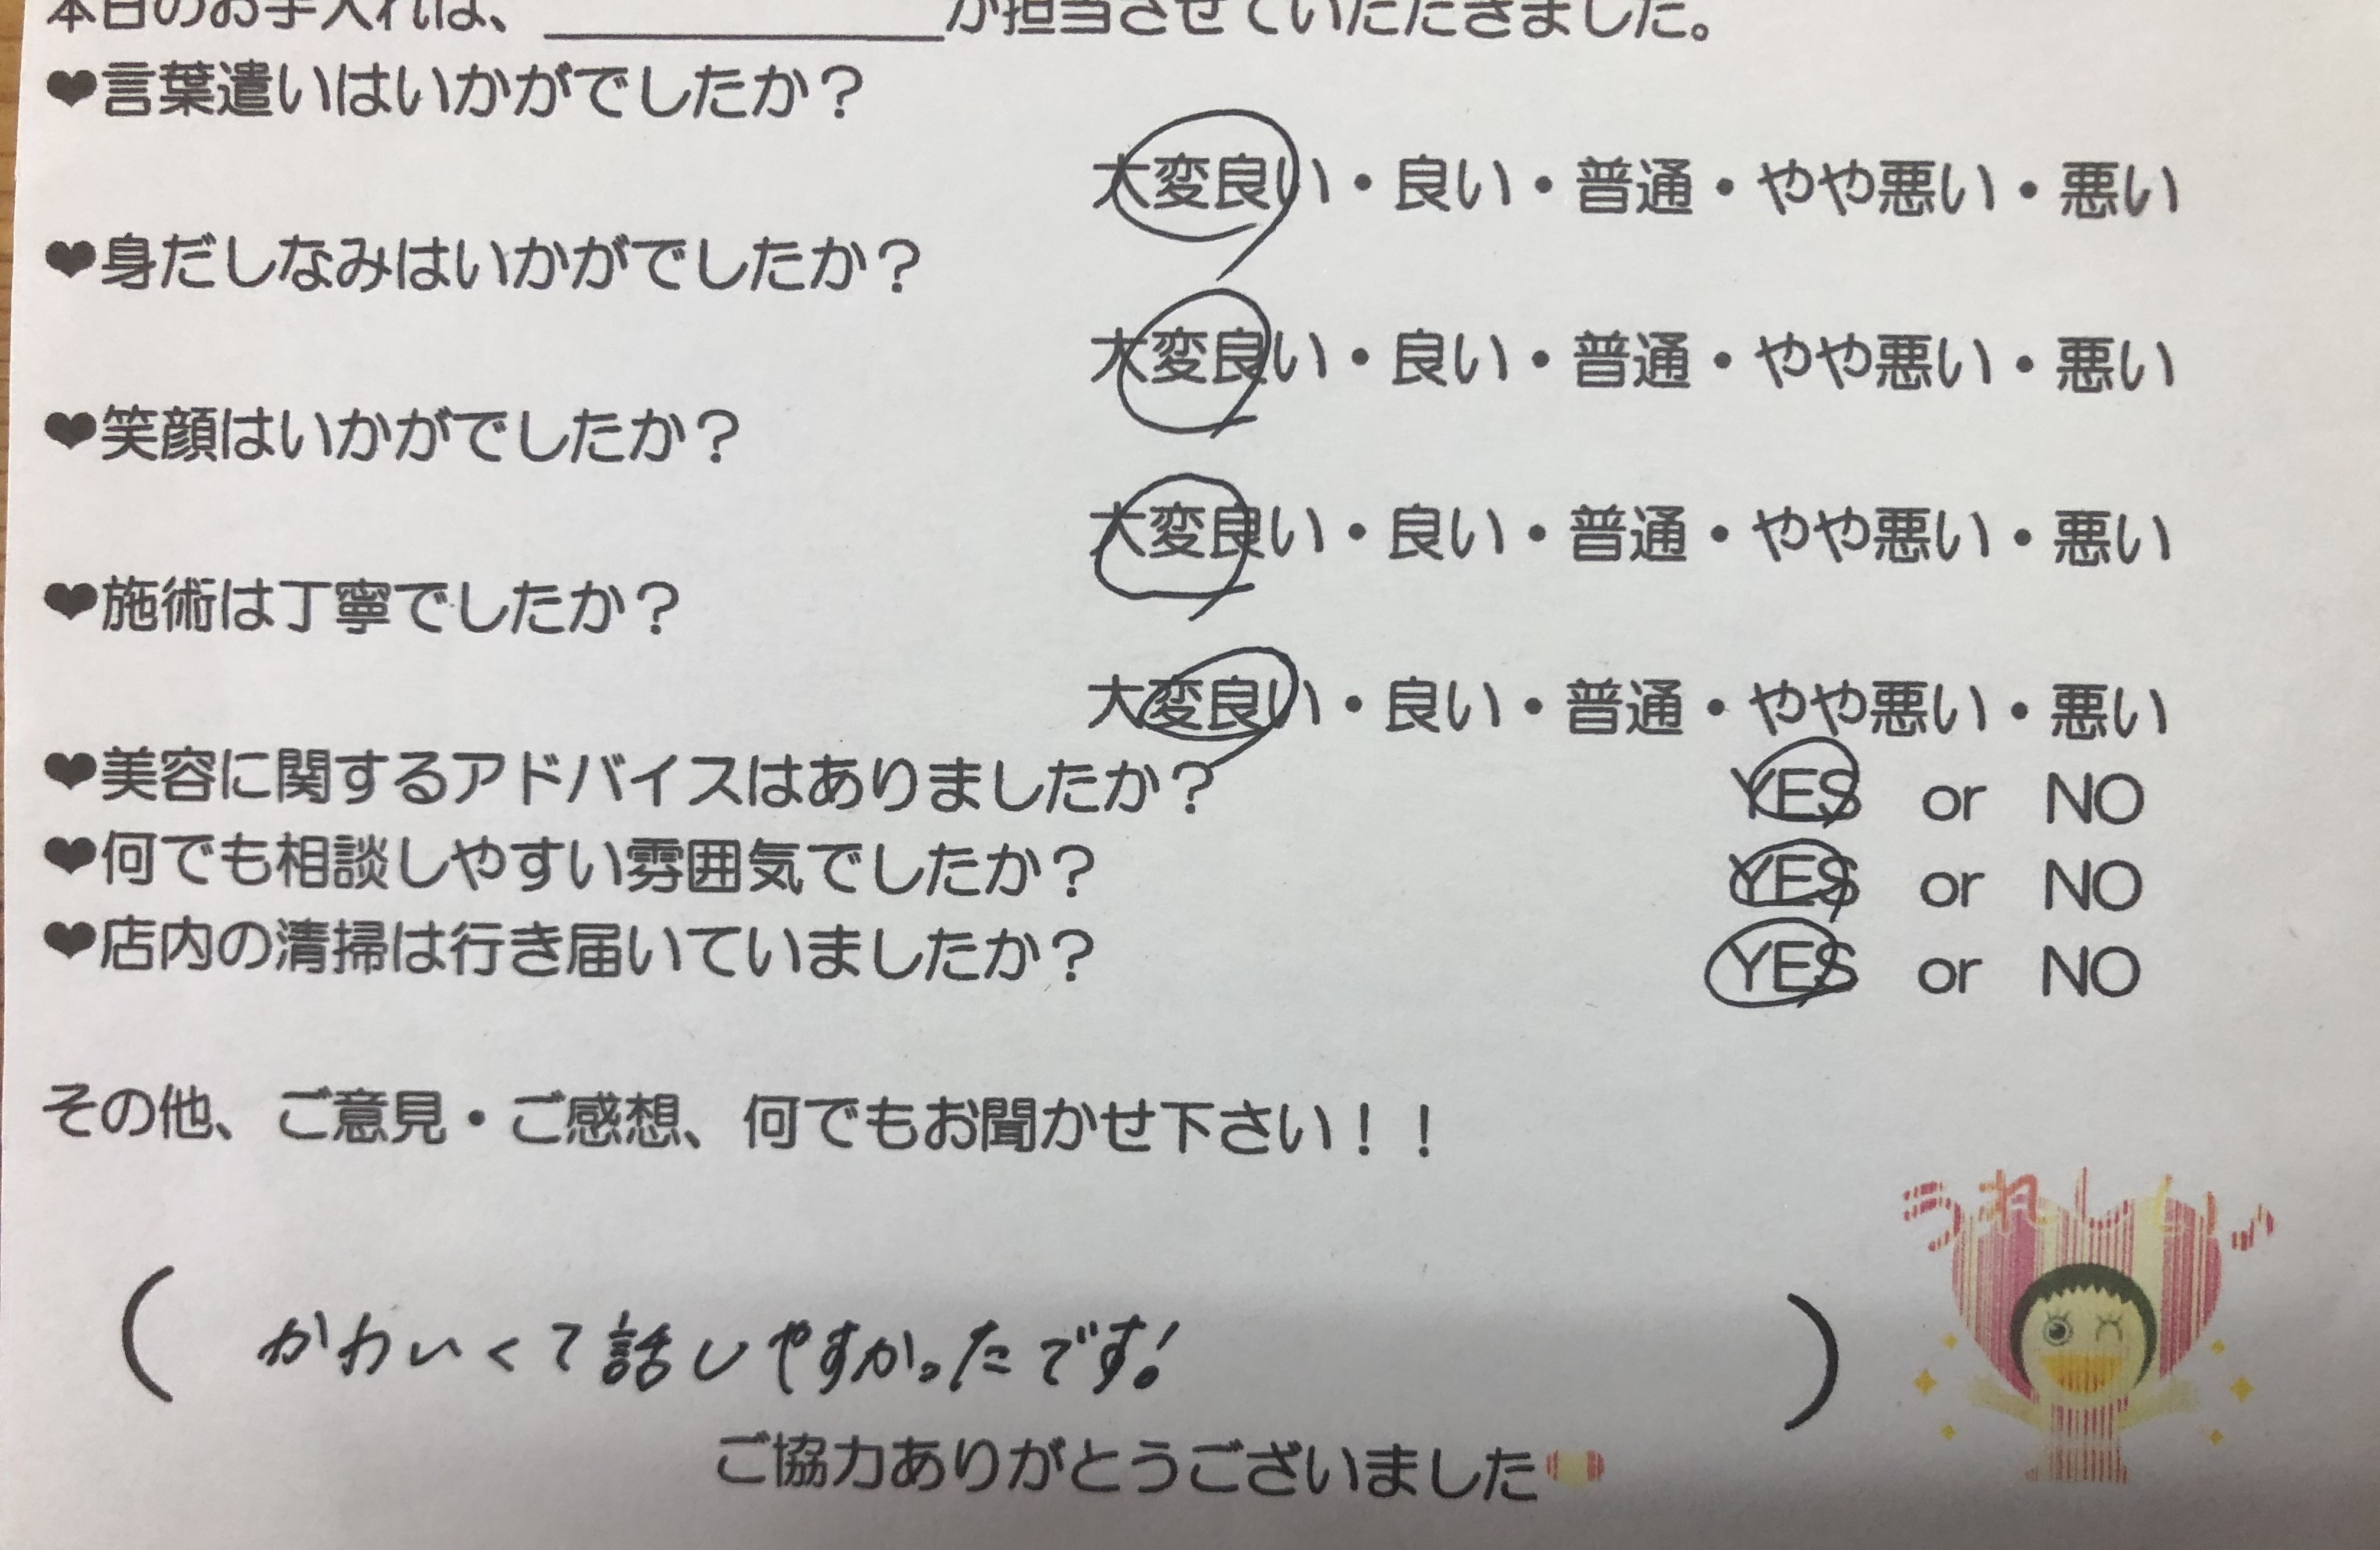 本日のお手入れは、____________が担当させていただきました。
❤言葉遣いはいかがでしたか？
大変良い・良い・普通・やや悪い・悪い
❤身だしなみはいかがでしたか？
大変良い・良い・普通・やや悪い・悪い
❤笑顔はいかがでしたか？
大変良い・良い・普通・やや悪い・悪い
❤施術は丁寧でしたか？
大変良い・良い・普通・やや悪い・悪い
❤美容に関するアドバイスはありましたか？ YES or NO
❤何でも相談しやすい雰囲気でしたか？ YES or NO
❤店内の清掃は行き届いていましたか？ YES or NO
その他、ご意見・ご感想、何でもお聞かせ下さい！！
うれしい
( かわいくて話しやすかったです! )
ご協力ありがとうございました